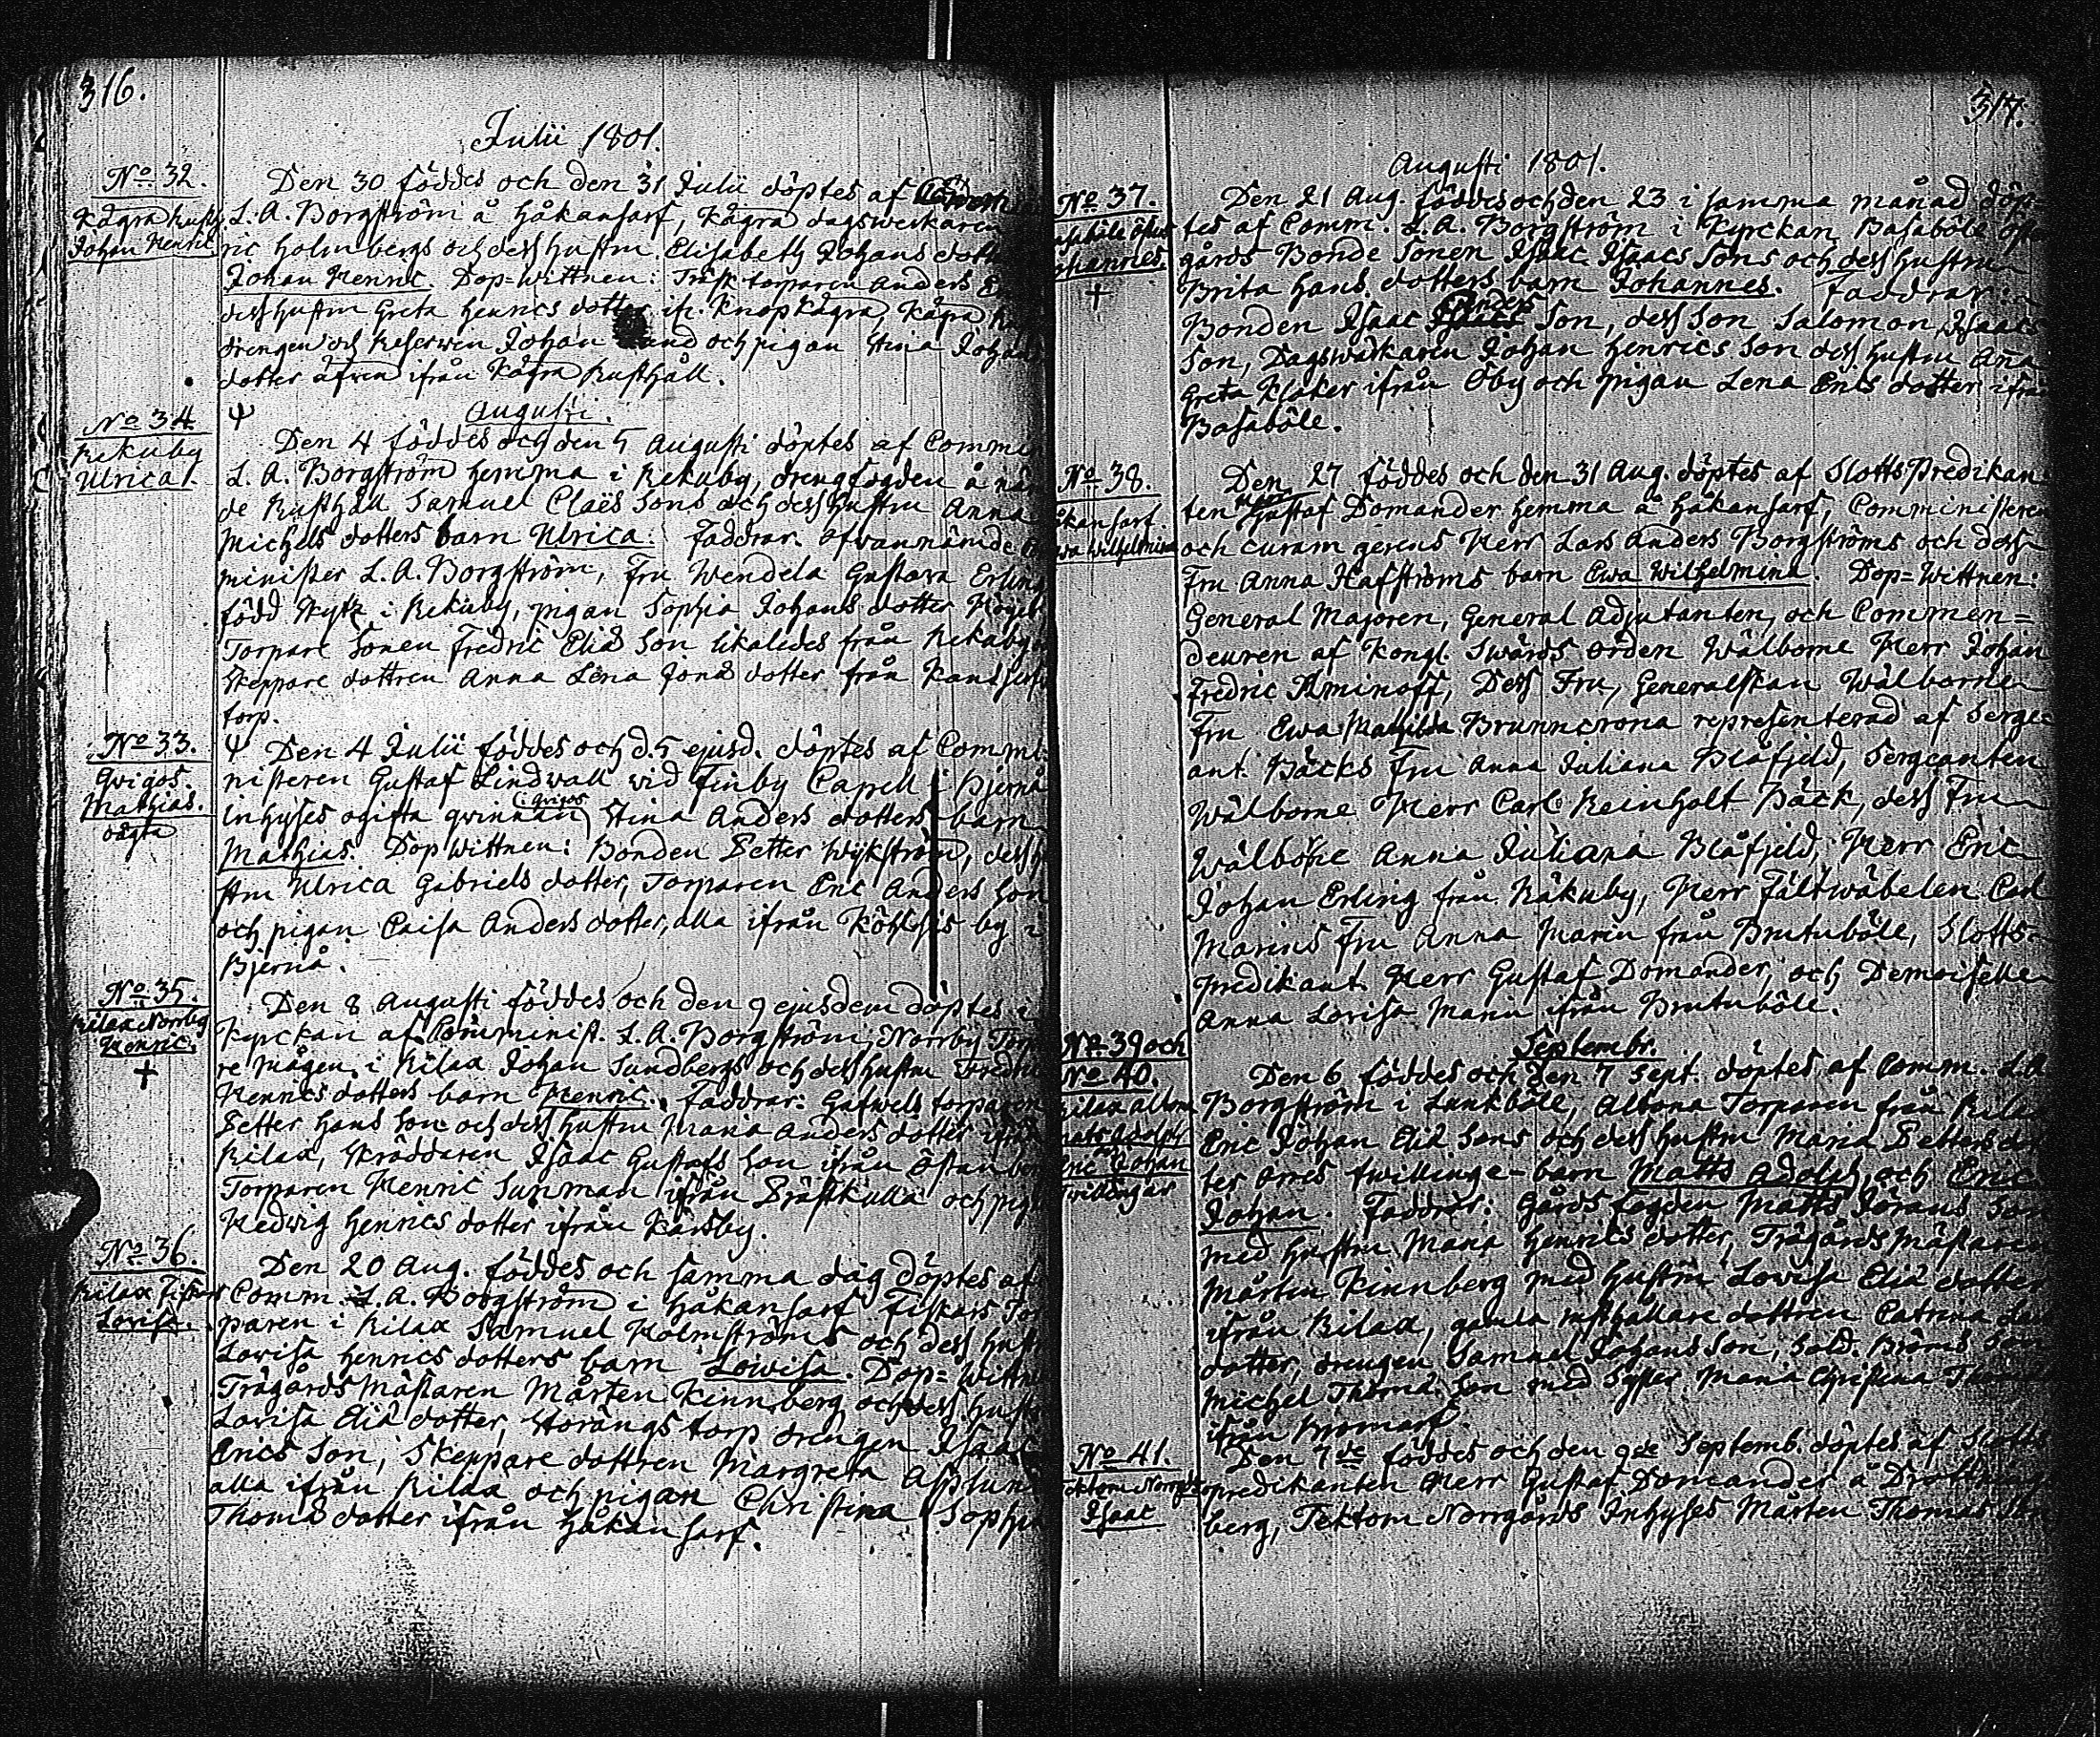 316.
Julii 1801.
No 32.
Kågra Rusth.
Johan Henric
Den 30 föddes och den 31 Julii döptes af
L. A. Borgström å Håkansarf, Kågra dagswerkaren
ric Holmbergs och dess hustru Elisabeth Johans dott
Johan Henric. Dop-wittnen: Träsk torparen Anders
dess hustru Greta Henrics dotter ifr. Knopkågra, Kågra
drengen och Reserven Johan och pigan Stina Johans
dotter äfven ifrån Kågra Rusthåll.
Augusti.
No 34.
Rekuby
Ulrica.
Ψ
Den 4 föddes och den 5 Augusti döptes af Commi
L. A. Borgström hemma i Rekuby, drengfogden å näm
de Rusthåll Samuel Claës Sons och dess hustru Anna
Michels dotters barn Ulrica. Faddrar. Ofwannämde
minister L. A. Borgström, Fru Wendela Gustava Erling
född Kyhz i Rekuby, pigan Sophia Johans dotter
Torpare Sonen Fredric Eliæ Son likaledes från Rekuby
Skeppare dottren Anna Lena Jonæ dotter från
torp.
No 33.
Qvigos
Mathias.
oägta
Ψ Den 4 Julii föddes och d. 5 ejusd. döptes af Commi-
nisteren Gustaf Lindwall vid Finby Capell i Bjernå
Inhyses ogifta qvinnan (i Qvigos) Stina Anders dotters barn
Mathias. Dop wittnen: Bonden Petter Wijkström, dess hu
stru Ulrica Gabriels dotter, Torparen Eric Anders Son
och pigan Caisa Anders dotter, alla ifrån by i
Bjernå.
No 35.
Rilax Norrby
Henric.
+
Den 8 Augusti föddes och den 9 ejusdem döptes i
Kyrckan af Comminist. L. A. Borgström, Norrby Torpa
re mågen i Rilax Johan Sundbergs och dess hustru
Henrics dotters barn Henric. Faddrar: torparen
Petter Hans Son och dess hustru Maria Anders dotter ifrån
Rilax, Skräddaren Isaac Gustafs Son ifrån
Torparen Henric Sunman ifrån Prästkulla och pigan
Hedwig Henrics dotter ifrån Kårsby.
No 36.
Rilax Fiskars
Lovisa.
Den 20 Aug. föddes och samma dag döptes af
Comm. L. A. Borgström i Håkansarf Fiskars Tor
paren i Rilax Samuel Holmströms och dess hustr
Lovisa Henrics dotters barn Lovisa. Dop-wittne
Trägårds Mästaren Mårten Kinnberg och dess hustr
Lovisa Eliæ dotter, Storängs torp drengen Isaac
Erics Son, Skeppare dottren Margreta Asplund
alla ifrån Rilax och pigan Christina Sophia
Thomæ dotter ifrån Håkansarf.
317.
Augusti 1801.
No 37.
Johannes
+
Den 21 Aug. föddes och den 23 i samma månad döp-
tes af Comm. L. A. Borgström i Kyrckan Basaböle Öster
gårds Bonde Sonen Isaac Isaacs Sons och dess hustru
Brita Hans dotters barn Johannes. Faddrar:
Bonden Isaac Anders Son, dess Son Salomon Isaacs
Son, Dagswärkaren Johan Henrics Son dess hustru Anna
Greta Klöker ifrån Öby och pigan Lena Erics dotter ifrån
Basaböle.
No 38.
Håkansarf.
Ewa Wilhelmina
Den 27 föddes och den 31 Aug. döptes af Slotts Predikan-
ten Herr Gustaf Domander hemma å Håkansarf, Comministeren
och curam gerens Herr Lars Anders Borgströms och dess
Fru Anna Hafströms barn Ewa Wilhelmina. Dop-Wittnen:
General Majoren, General Adjutanten, och Commen=
deuren af Kongl. Swärds Orden Wälborne Herr Johan
Fredric Aminoff, Dess Fru, Generalskan Wälborne
Fru Ewa Mathilda Brunncrona representerad af Serge-
ant. Bäcks Fru Anna Juliana Blåfjeld, Sergeanten
Wälborne Herr Carl Reinholt Bäck, dess Fru
Wälborne Anna Juliana Blåfjeld, Herr Eric
Johan Erling från Räkuby, Herr Fältwäbelen Carl
Marins Fru Anna Marin från Brutuböle, Slotts-
Predikant Herr Gustaf Domander, och Demoiselle
Anna Lovisa Marin ifrån Brutuböle.
Septembr.
No 39 och
No 40.
Rilax Altona
Matts Adolph
och
Eric Johan
Twillingar
Den 6 föddes och den 7 Sept. döptes af Comm. L. A.
Borgström i Lunkböle, Altona Torparen från Rilax
Eric Johan Eliæ Sons och dess hustru Maria Petters dot
ters twillinge-barn Matts Adolph, och Eric
Johan. Faddrar: Gårds fogden Matts Jörans Son
med hustru Maria Henrics dotter, Trägårds Mästaren
Mårten Kinnberg med hustru Lovisa Eliæ dotter
ifrån Rilax, gamla rusthållare dottren Catrina
dotter, drengen Samuel Johans Son, Sold. Bröms Son
Michel Thomæ Son med Syster Maria Christina
ifrån Bromarf.
No 41.
Tektom Norrgård
Isaac
Den 7de föddes och den 9de Septemb. döptes af Slotts
predikanten Herr Gustaf Domander å Drottning
berg, Tektom Norrgårds Inhyses Mårten Thomas Son